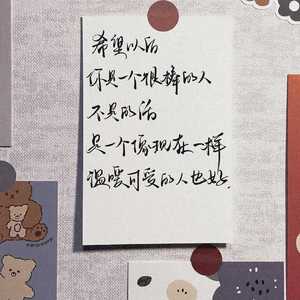 希望以后
你是一个很棒的人
不是的话
是一个像现在一样
温暖可爱的人也好.